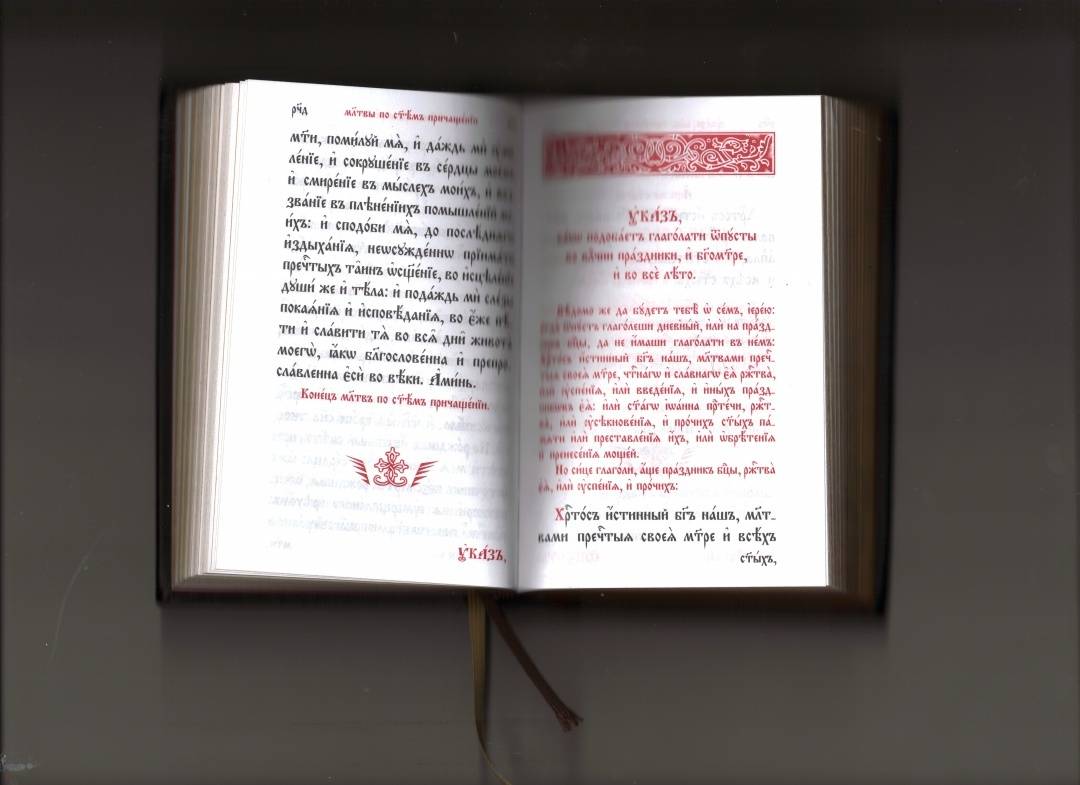 рч҃д
мл҃твы по ст҃ѣмъ причаще́нїи
мт҃и, поми́лꙋй мѧ̀, и҆ да́ждь мѝ
ле́нїе, и҆ сокрꙋше́нїе въ се́рдцы
и҆ смире́нїе въ мы́слехъ мои́хъ, и҆
зва́нїе въ плѣне́нїихъ помышле́нїй
и҆́хъ: и҆ сподо́би мѧ̀, до послѣ́днѧгѡ
и҆здыха́нїѧ, неѡсꙋжде́ннѡ прїима́ти
пречⷭ҇тыхъ та̑инъ ѡ҆сщ҃е́нїе, во и҆сцѣле́нїе
дꙋшѝ же и҆ тѣ́ла: и҆ пода́ждь мѝ сле́зы
покаѧ́нїѧ и҆ и҆сповѣ́данїѧ, во є҆́же пѣ́-
ти и҆ сла́вити тѧ̀ во всѧ̑ дни҄ живота̀
моегѡ̀, ꙗ҆́кѡ блгⷭ҇ове́нна и҆ препро-
сла́вленна є҆сѝ во вѣ́ки. А҆ми́нь.
Коне́цъ мл҃твъ по ст҃ѣмъ причаще́нїи.
Ꙋ҆ка́зъ,
Ꙋ҆ка́зъ,
ка́кѡ подоба́етъ глаго́лати ѿпꙋсты
во влⷣчни пра́здники, и҆ бг҃омт҃ре,
и҆ во всѐ лѣ́то.
Вѣ́домо же да бꙋ́детъ тебѣ̀ ѡ҆ се́мъ, і҆ере́ю:
ѿпꙋ́стъ глаго́леши дневны́й, и҆лѝ на пра́зд-
бц҃ы, да не и҆́маши глаго́лати въ не́мъ:
Хрⷭ҇то́съ и҆́стинный бг҃ъ на́шъ, мл҃твами пречⷭ҇-
тыѧ своеѧ̀ мт҃ре, чтⷭ҇на́гѡ и҆ сла́внагѡ є҆ѧ̀ ржⷭ҇тва̀,
и҆лѝ ᲂу҆спе́нїѧ, и҆лѝ введе́нїѧ, и҆ и҆ны́хъ пра́зд-
никѡвъ є҆ѧ̀: и҆лѝ ст҃а́гѡ і҆ѡа́нна прⷣте́чи, ржⷭ҇т-
ва̀, и҆лѝ ᲂу҆сѣкнове́нїѧ, и҆ про́чихъ ст҃ы́хъ па́-
мѧти и҆лѝ преставле́нїѧ и҆́хъ, и҆лѝ ѡ҆брѣ́тенїѧ
и҆ пренесе́нїѧ моще́й.
Но си́це глаго́ли, а҆́ще пра́здникъ бц҃ы, ржⷭ҇тва̀
є҆ѧ̀, и҆лѝ ᲂу҆спе́нїѧ, и҆ про́чихъ:
Хрⷭ҇то́съ и҆́стинный бг҃ъ на́шъ, мл҃т-
вами пречⷭ҇тыѧ своеѧ̀ мт҃ре и҆ всѣ́хъ
ст҃ы́хъ,